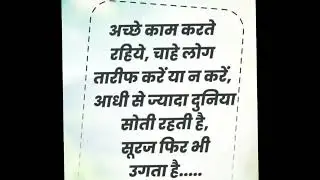 अच्छे काम करते
रहिये, चाहे लोग
तारीफ करें या न करें,
आधी से ज्यादा दुनिया
सोती रहती है,
सूरज फिर भी
उगता है.....